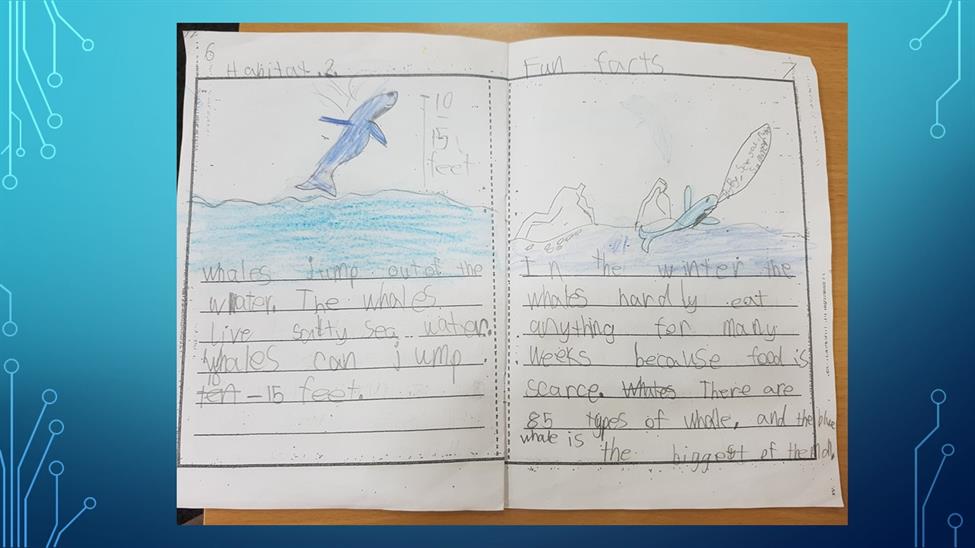 6
Habitat.2.
10
–
15
feet
whales jump out of the
water. The whales
live salty sea water.
Whales can jump
10
ten – 15 feet.
Fun farts
7
In the winter the
whales hardly eat
anything for many
weeks because food is
scarce. Whales There are
85 types of whale, and the blue
whale is the biggest of them all.